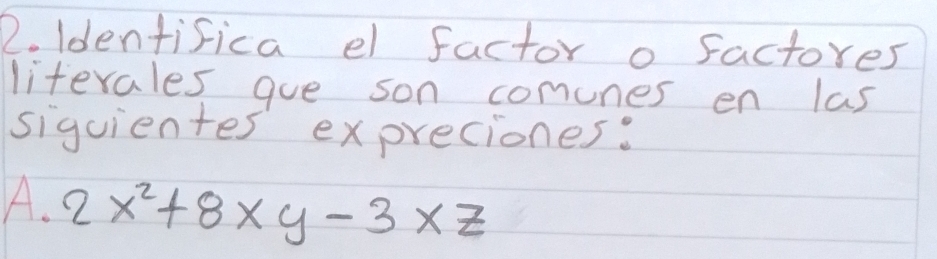 2. Identifica el factor o factores
literales que son comunes en las
siguientes expreciones:
A. 2x²+8xy-3xz